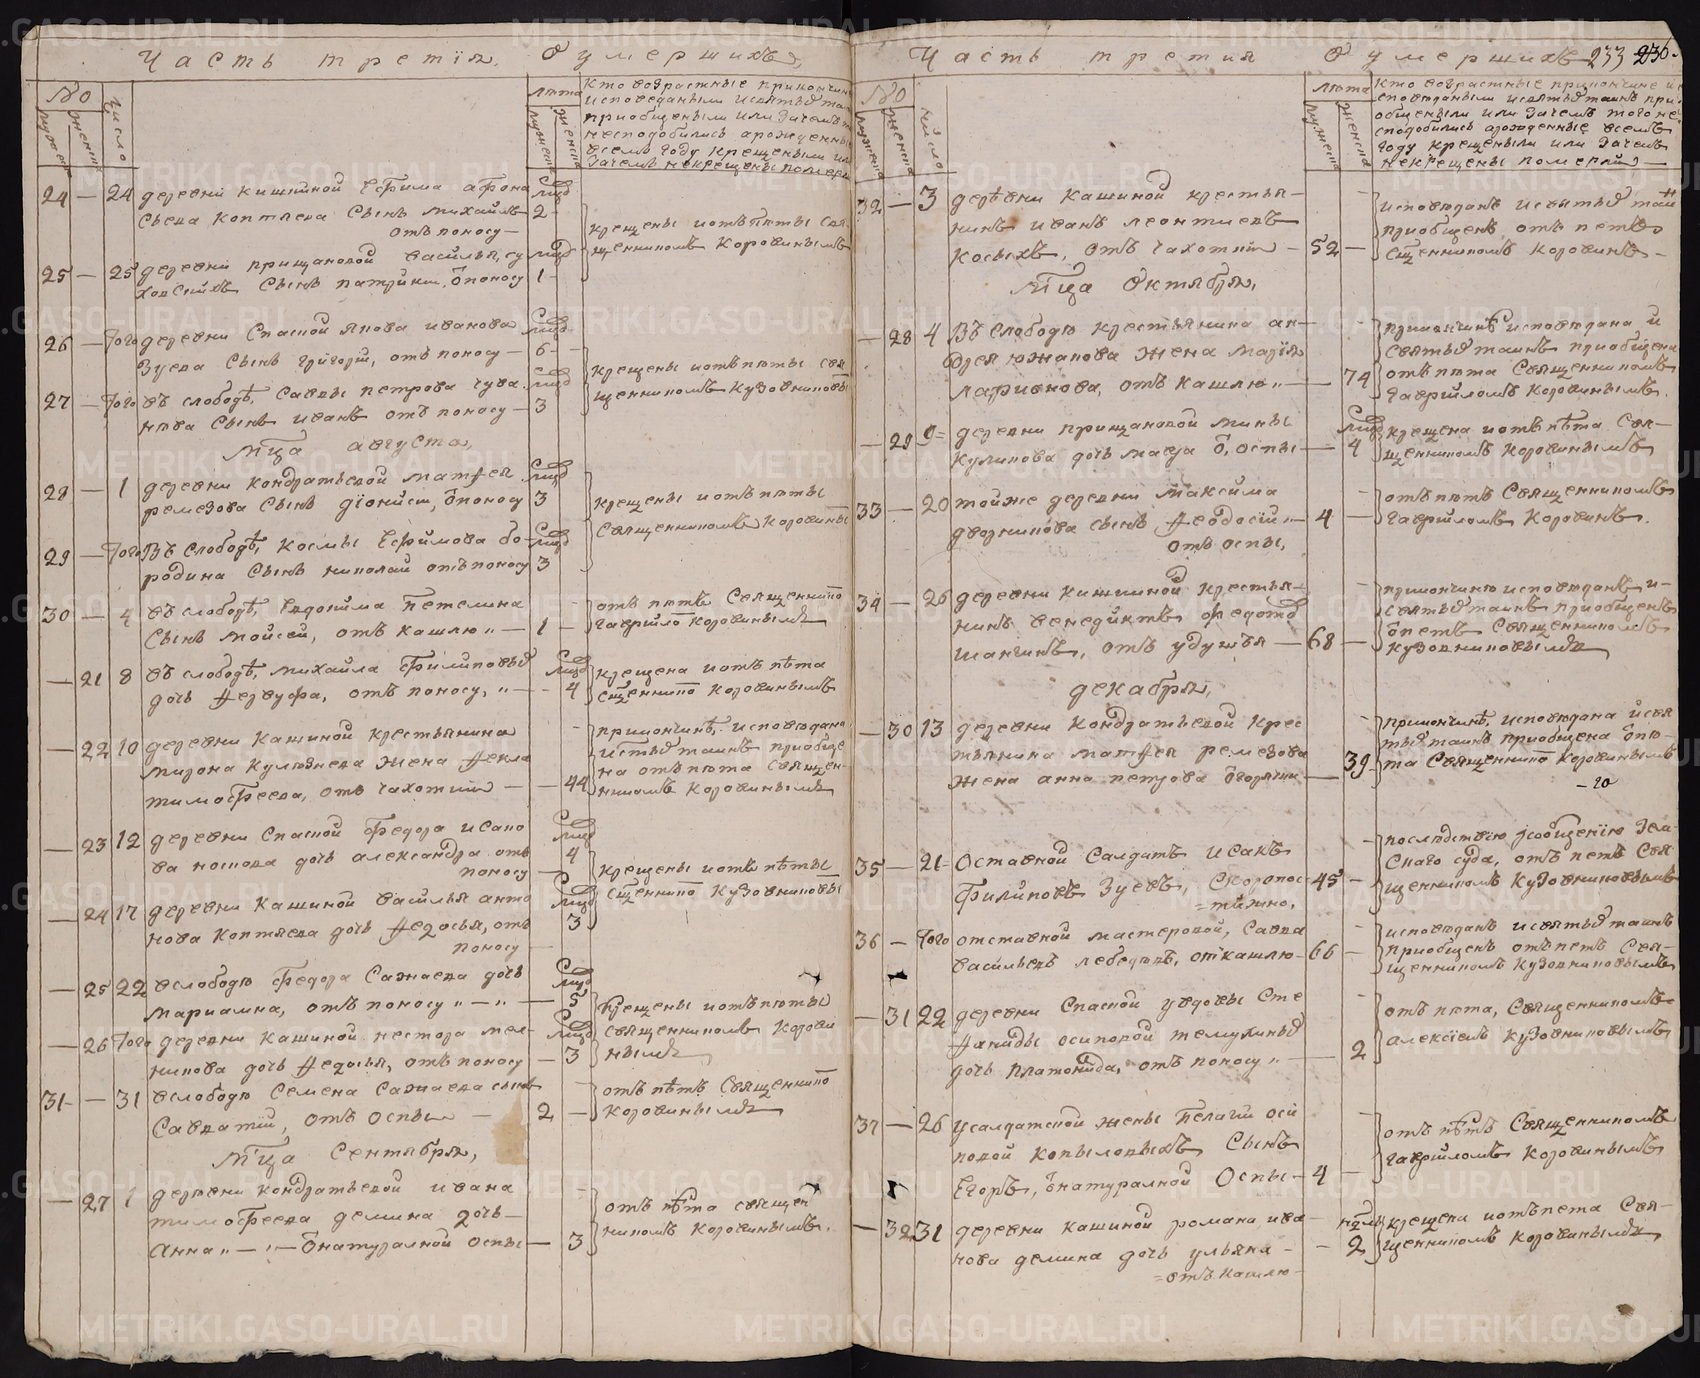 Часть третiя. О умершихъ
No
число
лѣта
мужеск
женск
24 — 24 деревни кишкиной Ефима Афона
сьева Коптяева сынъ михаилъ 2
отъ поносу —
крещены и отпѣты свя
щенникомъ Коровинымъ
25 — 25 деревни прищановой василья, су
сынъ 1 —
26 — того деревни Спасной якова иванова
Зуева сынъ григорiй, отъ поносу — 6 —
крещены и отпѣты свя
щенникомъ Кузовниковы
27 — того въ слободѣ, Саввы петрова чува
кова сынъ иванъ отъ поносу — 3
мца августа,
28 — 1 деревни Кондратьевой матѳея
ремезова сынъ дiонисiи, о поносу 3
крещены и отпѣты
священникомъ Коровины
29 — того Въ слободѣ, Космы Ефимова бо
родина сынъ николай отъ поносу 3
30 — 4 въ слободѣ, Евдокима Петелина
сынъ Мойсей, отъ кашлю — 1 —
отъ пѣтъ Священнико
гаврiило Коровинымъ
— 21 8 въ слободѣ, михаила филиповых
дочь, отъ поносу, — 4
крещена и отпѣта
сщенникo Коровинымъ
— 22 10 деревни Кашиной крестьянина
мирона Кулѣнева жена Ѳекла
тимофеева, отъ чахотки — 44
при кончинѣ исповѣдана
и стыхъ таинъ приобще
на отъ пѣта священ
никомъ Коровинымъ
— 23 12 деревни Спасной Федора исако
ва носкова дочь александра отъ 4
поносу —
крещены и отъ пѣты
сщеннико Кузовниковы
— 24 17 деревни Кашиной василья анто
нова Коптяева дочь Ѳедосья, отъ 3
поносу —
— 25 22 въ слободѣ Федора Сажаева дочь
мариамна, отъ поносу — 5
крещены и отпѣты
священникомъ Корови
нымъ
— 26 того деревни Кашиной нестора мел
никова дочь Ѳедосья, отъ поносу — 3
31 — 31 въ слободѣ Семена Сажаева сынъ
Савватiй, отъ Оспы — 2 —
отъ пѣтъ Священнико
Коровинымъ
Мца Сентября,
— 27 1 деревни Кондратьевой ивана
тимофеева демина дочь
Анна — о натуралной оспы — 3
отъ пѣта священ
никомъ Коровинымъ.
Часть третия О умершихъ 233 236
No
число
лѣта
мужеска
женска
Кто возрастные при кончине и
споведаны и святыхъ таинъ при
общены или зачемъ того не
сподобились а рожденные всемъ
году крещены или зачемъ
не крещены померли —
32 — 3 деревни Кашиной крестья
нинъ иванъ леонтиевъ
Косыхъ, отъ чахотки — 52 —
исповеданъ и святыхъ таи
приобщенъ отъ петъ
сщенникомъ Коровинъ —
Мца Октября,
— 28 4 Въ слободѣ крестьянина ан
дрея южакова жена марiя
лафионова, отъ кашлю — 74
при кончинѣ исповѣдана и
святыхъ таинъ приобщена
отъ пѣта Священникомъ
гаврiиломъ Коровинымъ.
— 29 9 деревни прищановой мины
Куликова дочь мавра о, оспы — 4
крещена и отъ пѣта Свя
щенникомъ Коровинымъ
33 — 20 той же деревни Максима
дворникова сынъ Ѳеодосiи 4 —
отъ оспы,
отъ пѣтъ Священникомъ
гаврiиломъ Коровинъ.
34 — 26 деревни Кишкиной крестья
нинъ венедиктъ федотов
шангинъ, отъ удушья — 68 —
при кончинѣ исповѣданъ и
святыхъ таинъ приобщенъ
о петъ Священникомъ
Кузовниковымъ
декабря,
— 30 13 деревни Кондратьевой крес
тьянина матѳея ремезова
жена анна петрова о горячки — 39
при кончинѣ, исповѣдана и свя
тыхъ таинъ приобщена о пѣ
та Священнико Коровинымъ
— го
35 — 21 Оставной Салдатъ Исакъ
Филиповъ Зуевъ, Скоропос 45 —
тижно.
по слѣдствiю сообщенiю Зем
скаго суда, отъ петъ Свя
щенникомъ Кузовниковымъ
36 — того отставной мастеровой, Савва
васильевъ лебедевъ, от кашлю 66 —
исповѣданъ и святыхъ таинъ
приобщенъ отъ петъ Свя
щенникомъ Кузовниковымъ
— 31 22 деревни Спасной у вдовы Сте
фаниды осиповой темухиных
дочь платонида, отъ поносу — 2
отъ пѣта, Священникомъ
алексiемъ Кузовниковымъ
37 — 26 у салдатской жены Пелагии оси
повой Копыловыхъ Сынъ
Егоръ, о натуралной Оспы 4 —
отъ пѣтъ Священникомъ
гаврiиломъ Коровинымъ
— 32 31 деревни Кашиной романа ива
нова демина дочь ульяна — 2
отъ кашлю
крещена и отъ пета Свя
щенникомъ Коровинымъ
METRIKI.GASO-URAL.RU